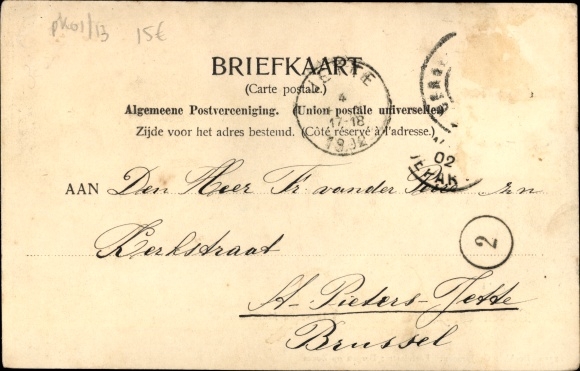 pk01/13 15€
BRIEFKAART
(Carte postale.)
Algemeene Postvereeniging. (Union postale universelle)
Zijde voor het adres bestemd. (Côté réservé à l'adresse.)
JETTE
4
17-18
1902
02
AAN Den Heer Fr. vander Zn
2
Kerkstraat
St-Pieters-Jette
Brussel